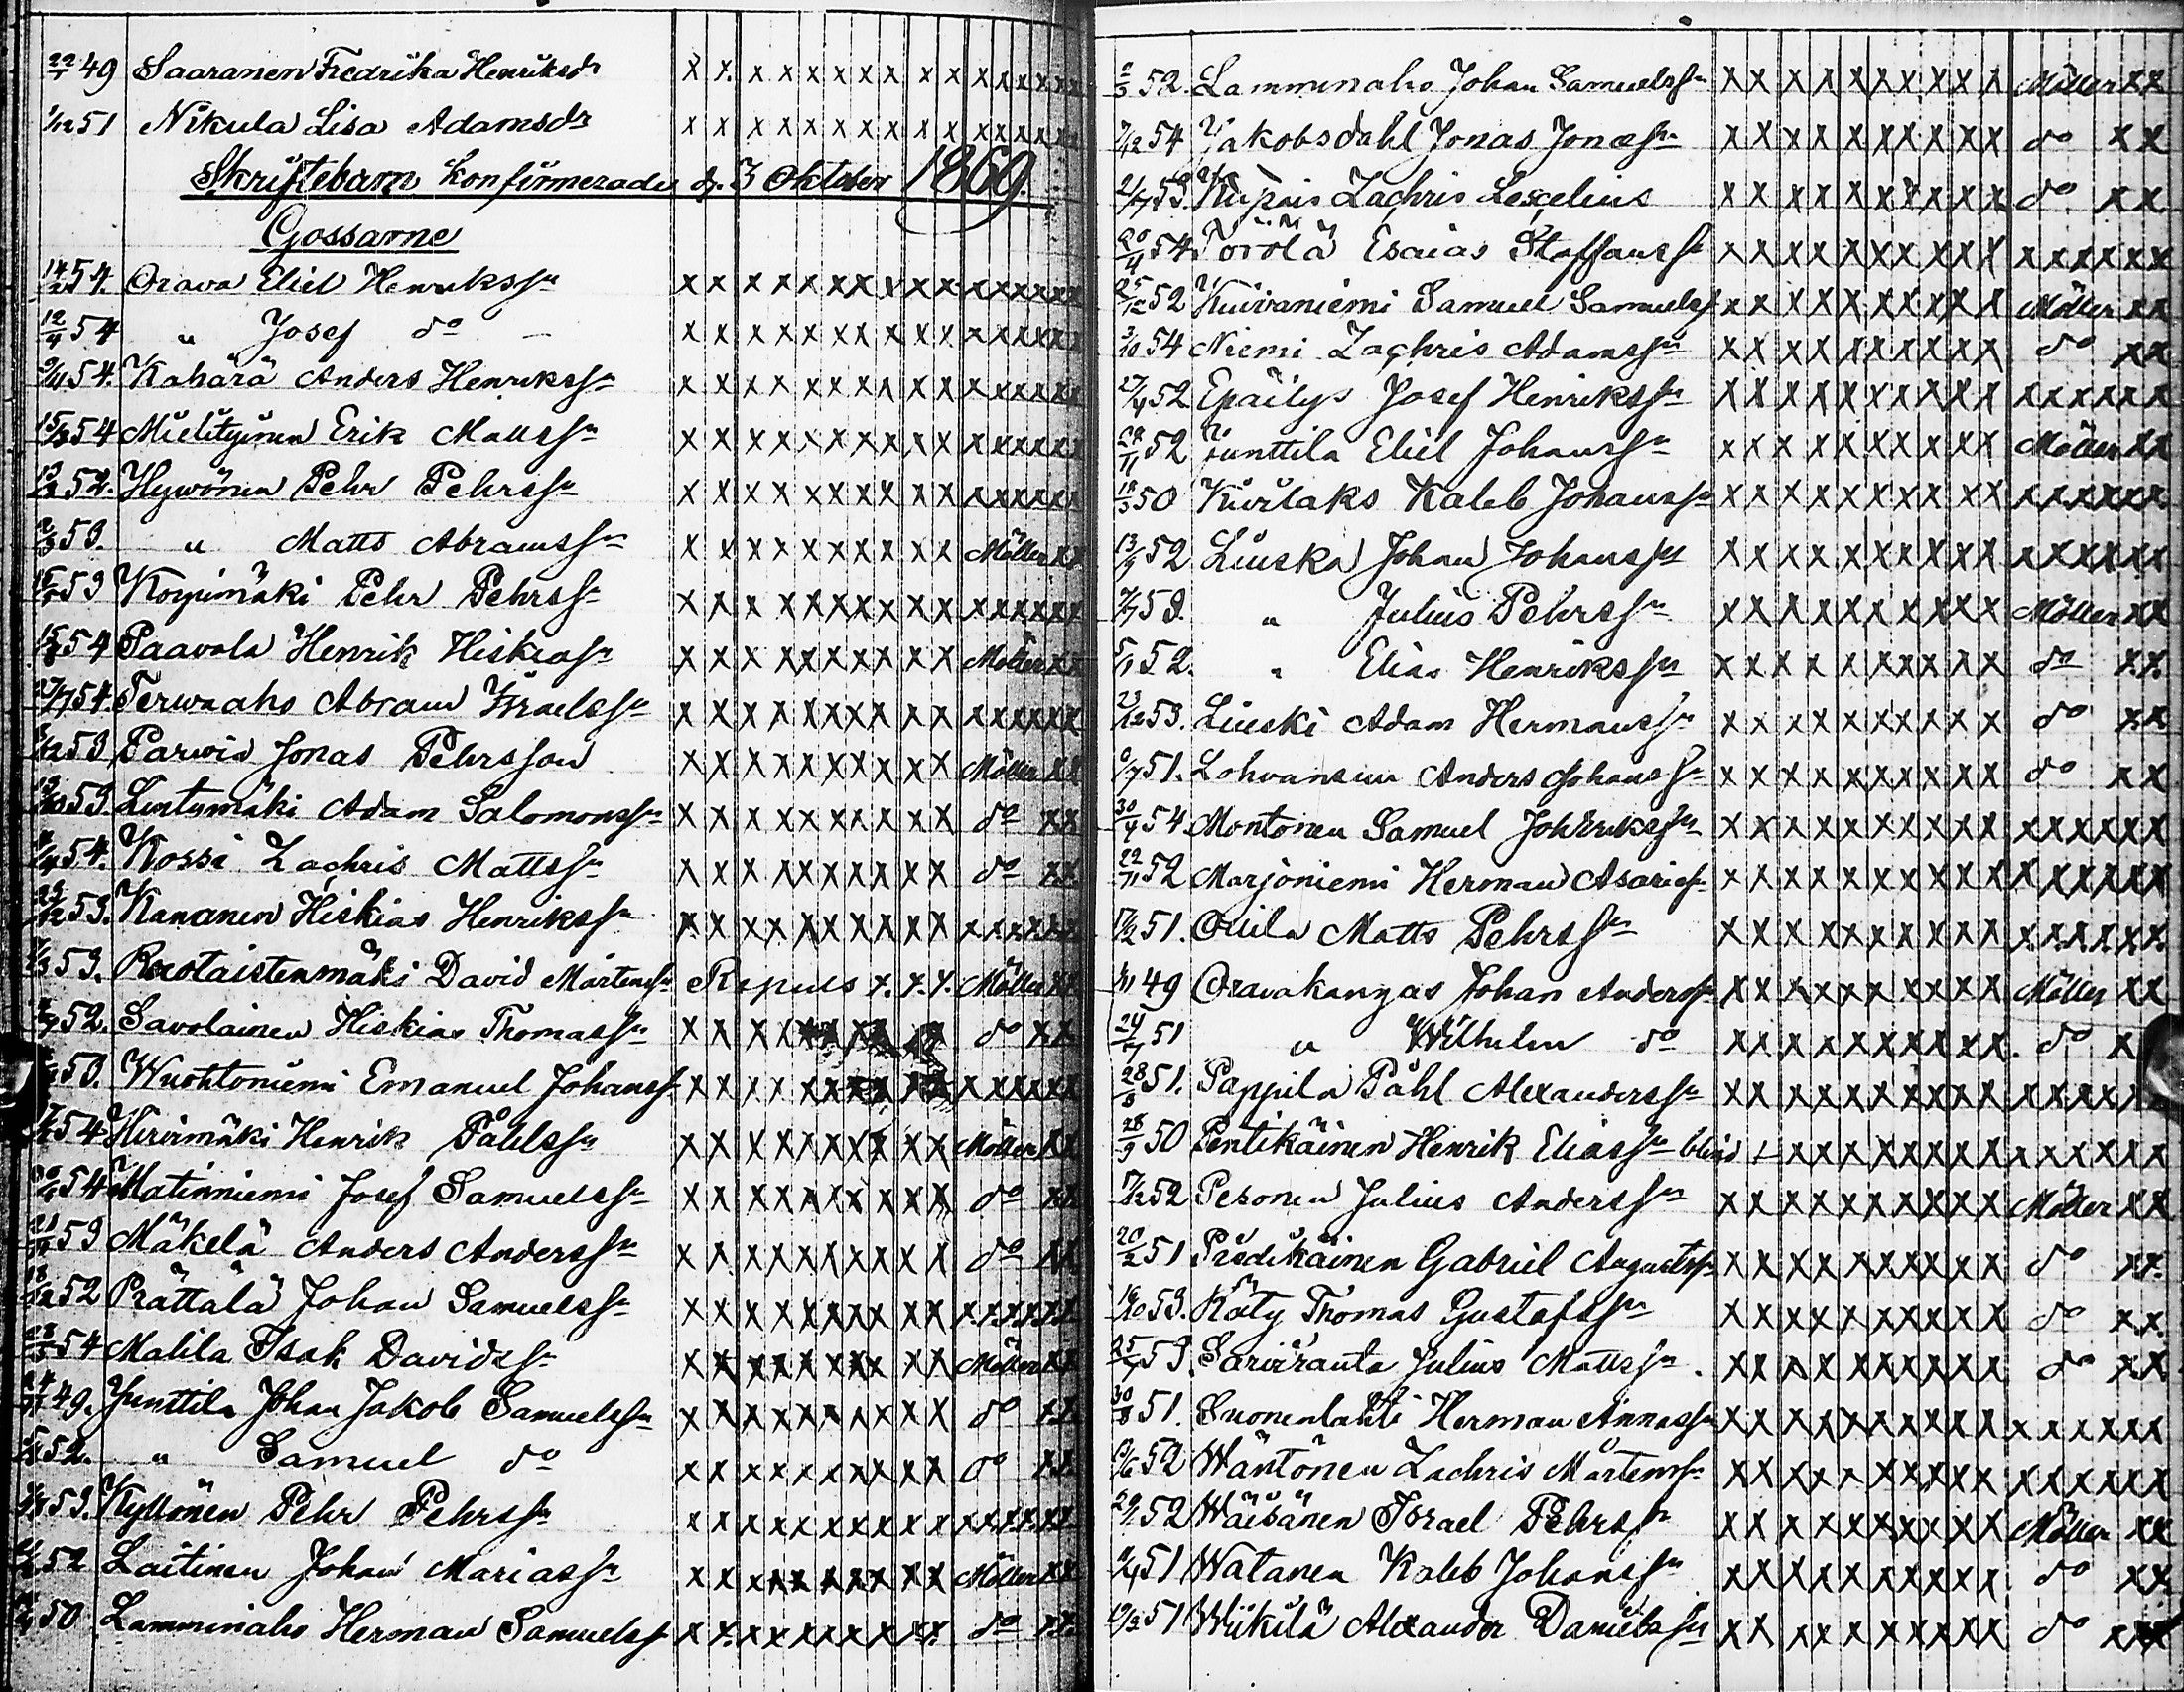 22/1 49 Saaranen Fredrika Henriksdr x x x x x x x x x x x x x x x x
1/12 51 Nikula Lisa Adamsdr x x x x x x x x x x x x x x x x
Skriftebarn Konfirmerade d. 3 Oktober 1869.
Gossarne
14/2 54. Orava Eliel Henrikssn x x x x x x x x x x x x x x x x
12/4 54 " Josef do – x x x x x x x x x x x x x x x x
54. Kähärä Anders Henrikssn x x x x x x x x x x x x x x x x
15/3 54 Mielityinen Erik Matssn x x x x x x x x x x x x x x x x
52. Hywönen Pehr Pehrssn x x x x x x x x x x x x x x x x
53. " Matts Abramssn x x x x x x x x x x Möller x x
53 Korpimäki Pehr Pehrssn x x x x x x x x x x x x x x x x
54 Paavola Henrik Hiskiassn x x x x x x x x x x Möller x x
54. Terwaaho Abram Israelssn x x x x x x x x x x x x x x x x
53 Parwia Jonas Pehrsson x x x x x x x x x x Möller x x
53. Lintumäki Adam Salomonssn x x x x x x x x x x do x x
54. Kossi Zachris Mattssn x x x x x x x x x x do x x
53. Kananen Hiskias Henrikssn x x x x x x x x x x x x x x x x
53. Ruotaistenmäki David Mårtenssn Repuls x. x. x. Möller x x
52. Savolainen Hiskias Thomassn x x x x x x x x x x do x x
50. Wuohtoniemi Emanuel Johanssn x x x x x x x x x x x x x x x x
54 Hirvimäki Henrik Påhlssn x x x x x x x x x x Möller x x
54 Matinniemi Josef Samuelssn x x x x x x x x x x do x x
53 Mäkelä Anders Anderssn x x x x x x x x x x do x x
52 Prättälä Johan Samuelssn x x x x x x x x x x x x x x x x
54 Malila Isak Davidssn x x x x x x x x x x Möller x x
49. Junttila Johan Jakob Samuelssn x x x x x x x x x x do x x
52. " Samuel do x x x x x x x x x x do x x
53. Kyllönen Pehr Pehrssn x x x x x x x x x x x x x x x x
52 Laitinen Johan Mariassn x x x x x x x x x x Möller x x
50 Lamminaho Herman Samuelssn x x x x x x x x x x do x x
52. Lamminaho Johan Samuelssn x x x x x x x x x x Möller x x
7/12 54 Jakobsdahl Jonas Jonassn x x x x x x x x x x do x x
53. Kupais Zachris Lexelius x x x x x x x x x x do x x
20/4 54. Törölä Esaias Staffanssn x x x x x x x x x x x x x x x x
25/12 52 Kuivaniemi Samuel Samuelssn x x x x x x x x x x Möller x x
3/10 54 Niemi Zachris Adamssn x x x x x x x x x x do x x
27/4 52 Epäilys Josef Henrikssn x x x x x x x x x x x x x x x x
52 Junttila Eliel Johanssn x x x x x x x x x x Möller x x
50 Kivilaks Kaleb Johanssn x x x x x x x x x x x x x x x x
13/9 52 Linska Johan Johanssn x x x x x x x x x x x x x x x x
7/7 53. " Julius Pehrssn x x x x x x x x x x Möller x x
52. " Elias Henrikssn x x x x x x x x x x do x x
23/12 53. Linski Adam Hermanssn x x x x x x x x x x do x x
51. Lohvansuu Anders Johanssn x x x x x x x x x x do x x
30/4 54 Montonen Samuel Joh Erikssn x x x x x x x x x x x x x x x x
22/11 52 Marjoniemi Herman Asariessn x x x x x x x x x x x x x x x x
51. Oiula Matts Pehrssn x x x x x x x x x x x x x x x x
49 Oravakangas Johan Anderssn x x x x x x x x x x Möller x x
24/7 51 " Wilhelm do x x x x x x x x x x do x
28/8 51. Pappila Påhl Alexanderssn x x x x x x x x x x x x x x x x
28/9 50 Pentikäinen Henrik Eliassn blind x x x x x x x x x x x x x x x
52 Pesonen Julius Anderssn x x x x x x x x x x Möller x x
20/2 51 Prädikäinen Gabriel Augustssn x x x x x x x x x x do x x
53. Räty Thomas Gustafssn x x x x x x x x x x do x x
25/7 53. Sarviranta Julius Mattssn. x x x x x x x x x x do x x
30/8 51. Suonenlahti Herman Annassn x x x x x x x x x x x x x x x x
52 Wäntönen Zachris Mårtenssn x x x x x x x x x x x x x x x x
52 Wäisänen Israel Pehrssn x x x x x x x x x x Möller x x
51 Watanen Kaleb Johanssn x x x x x x x x x x do x x
51 Wiikilä Alexander Danielssn x x x x x x x x x x do x x